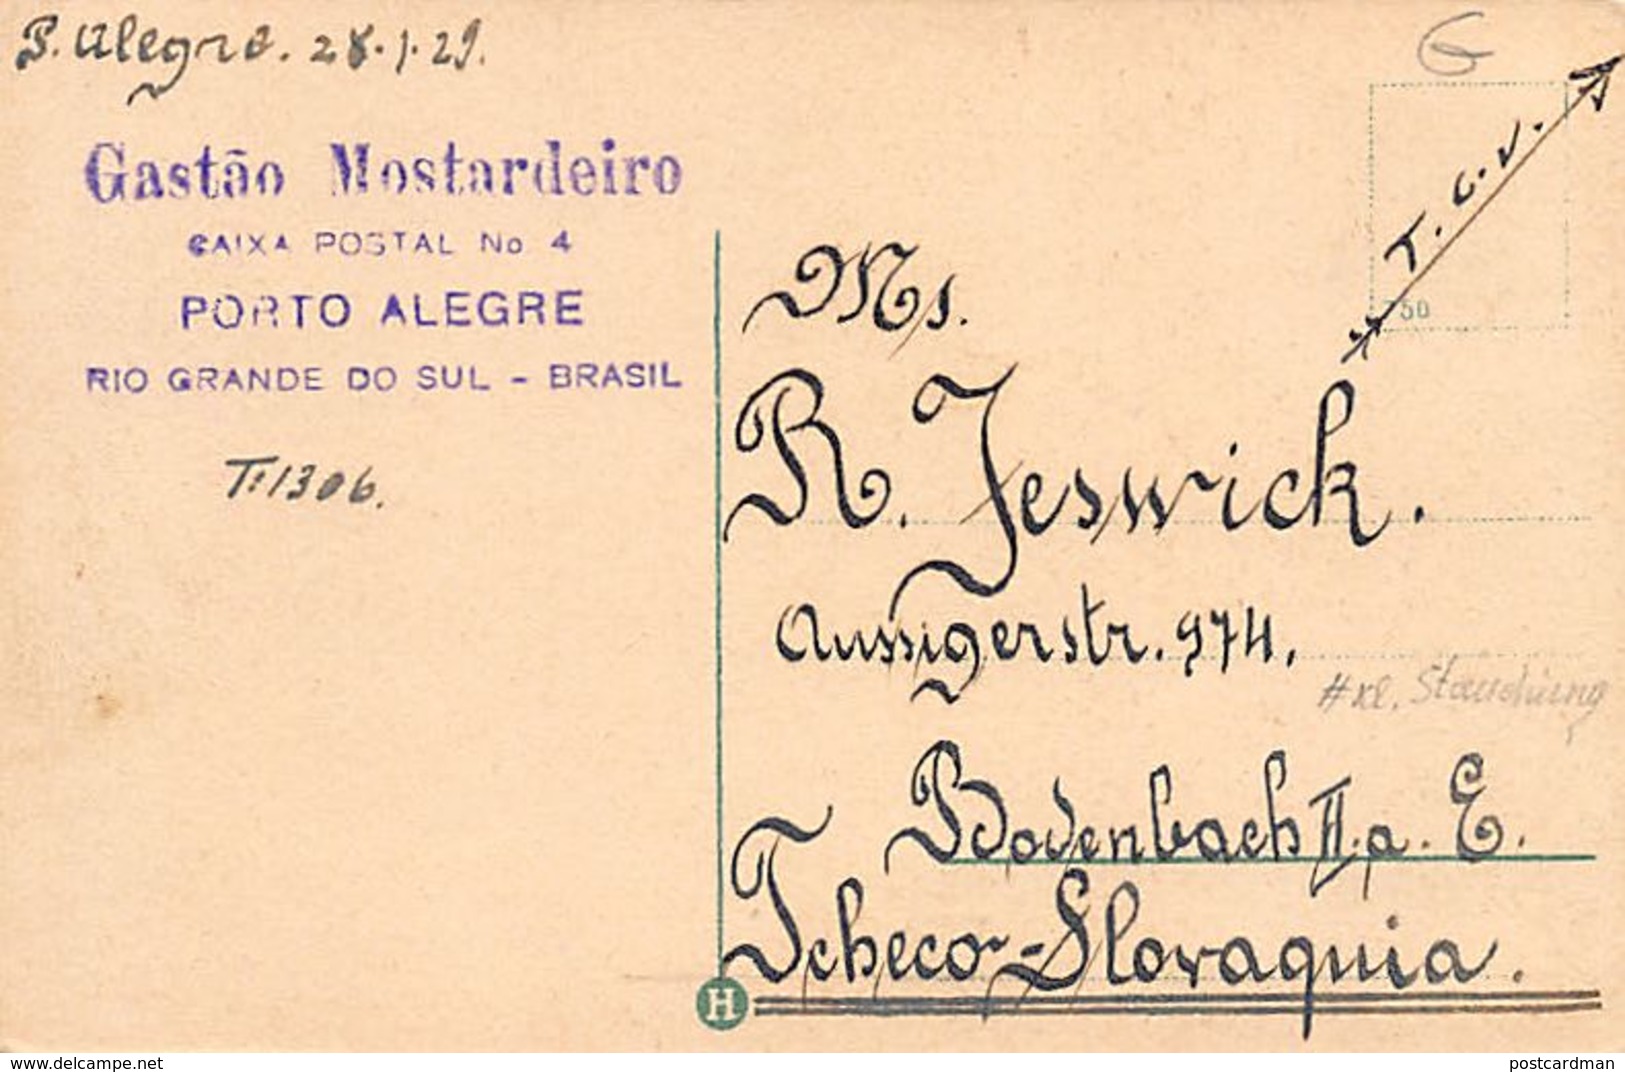 P. Alegre. 28.1.29.
Gastão Mostardeiro
CAIXA POSTAL No 4
PORTO ALEGRE
RIO GRANDE DO SUL - BRASIL
T:1306.
T. C. V.
50
Ms.
R. Jeswick.
Aussigerstr. 974.
# kl. Stauchung
Bodenbach II. a. E.
Tcheco-Slovaquia.
H
www.delcampe.net
postcardman